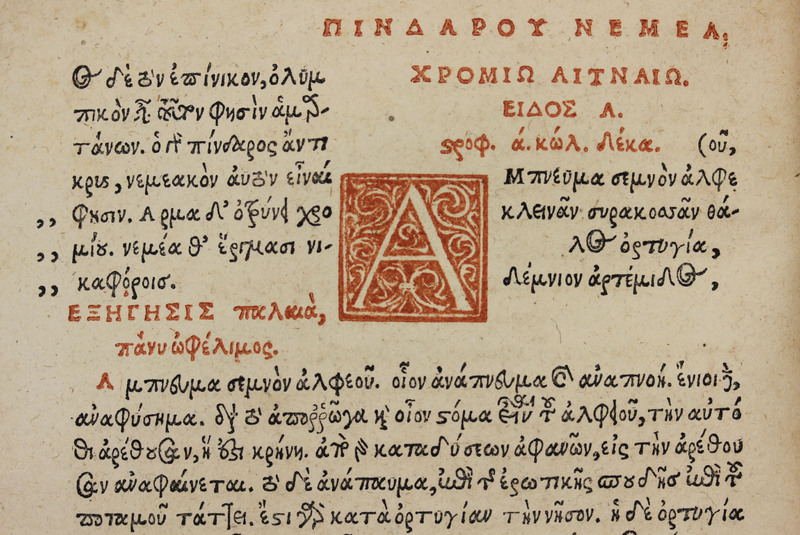 ΠΙΝΔΑΡΟΥ ΝΕΜΕΑ,
δὲ τὸν ἐπίνικον, ὀλύμ
πικὸν ἢ φησὶν ἁμαρ-
τάνων. ὁ γὰρ πίνδαρος ἄντι
κρυς, νεμεακὸν αὐτὸν εἶναί
,, φησιν. Αρμα δ' ὀξύνει χρο
,, μίου. νεμέα θ' ἕργμασι νι-
,, καφόροις.
ΧΡΟΜΙΩ ΑΙΤΝΑΙΩ.
ΕΙΔΟΣ Α.
στροφ. ά. κώλ. δέκα. (οῦ,
ΑΜπνεῦμα σεμνὸν ἀλφε
κλεινᾶν συρακοσσᾶν θά-
λος ὀρτυγία,
δέμνιον ἀρτέμιδος,
ΕΞΗΓΗΣΙΣ παλαιὰ,
πάνυ ὠφέλιμος.
Αμπνευμα σεμνὸν ἀλφεοῦ. οἷον ἀνάπνευμα καὶ ἀναπνοή. ἔνιοι δὲ,
ἀναφύσημα. διὰ τὸ ἀπορρῶγα καὶ οἷον στόμα τοῦ ἀλφειοῦ, τὴν αὐτό
θι ἀρέθουσαν, ἥ ἐστι κρήνη. καταδύσεων ἀφανῶν, εἰς τὴν ἀρέθου
σαν ἀναφαίνεται. τὸ δὲ ἀνάπαυμα, ἐπὶ τῆς ἐρωτικῆς σπουδῆς ἐπὶ τοῦ
ποταμοῦ τάττει. ἔστι γὰρ κατὰ ὀρτυγίαν τὴν νῆσον. ἡ δὲ ὀρτυγία